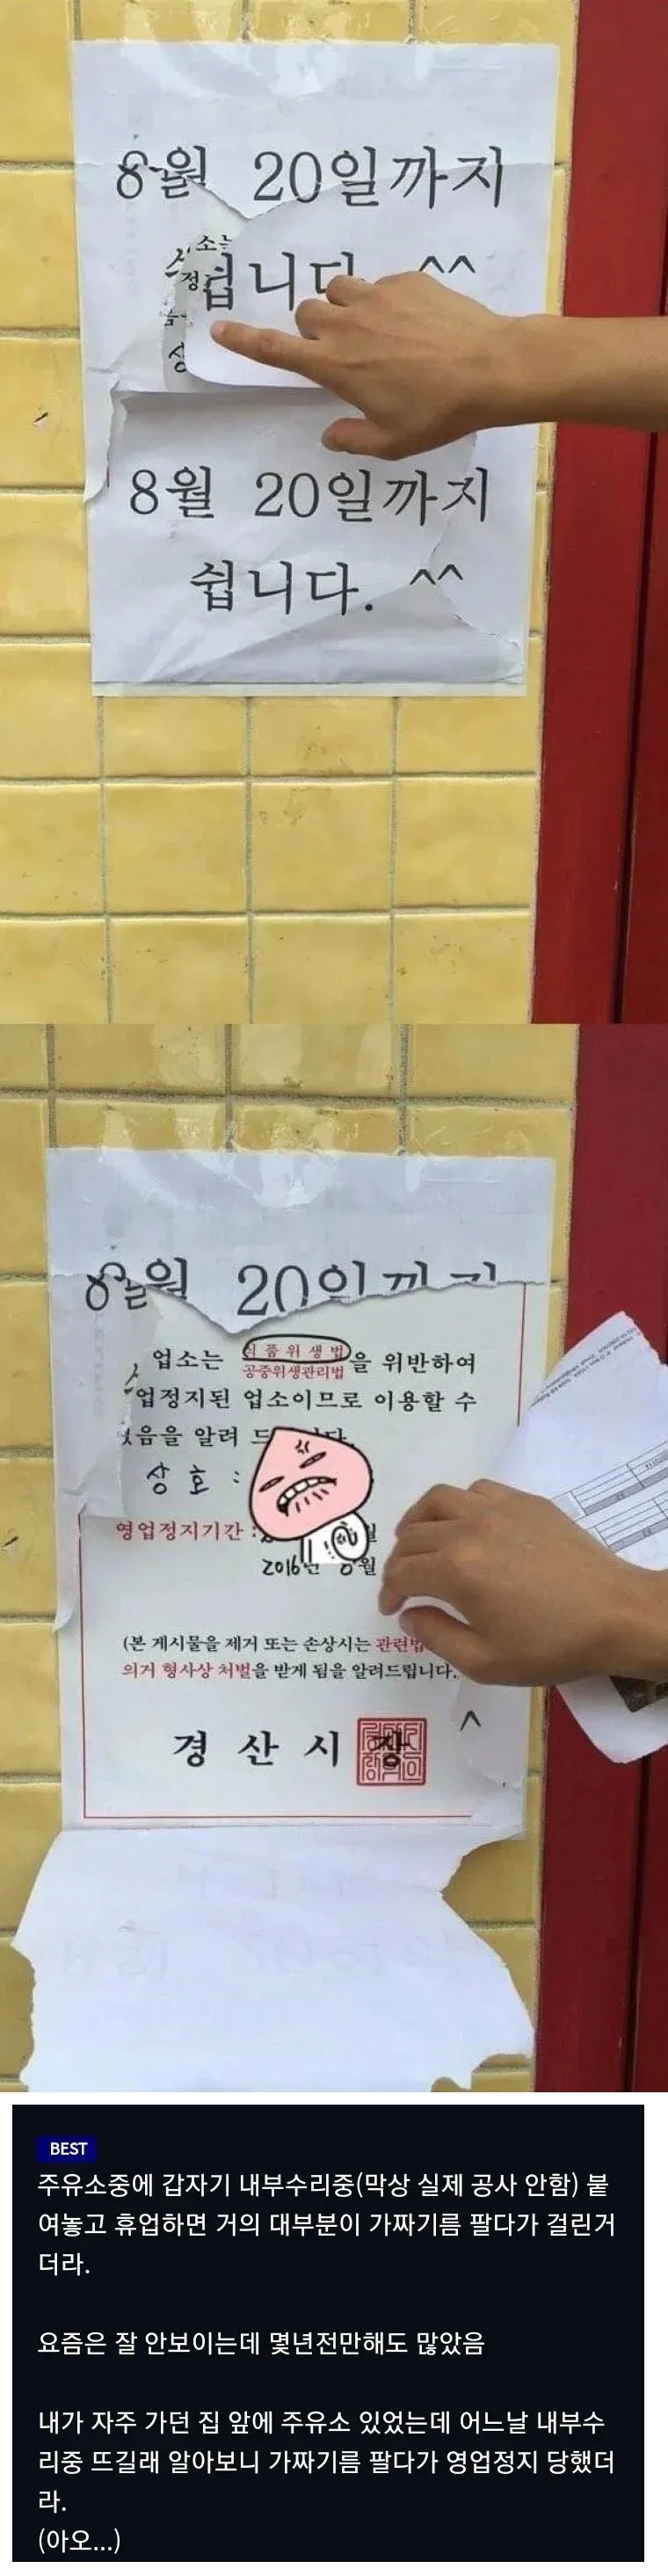 8월 20일까지
쉽니다. ^^
소는
정
8월 20일까지
쉽니다. ^^
8월 20일까지
업소는 식품위생법
공중위생관리법 을 위반하여
업정지된 업소이므로 이용할 수
음을 알려 드
상 호 :
영업정지기간 :
2016년 월
(본 게시물을 제거 또는 손상시는 관련법
의거 형사상 처벌을 받게 됨을 알려드립니다.
^
경 산 시 장
BEST
주유소중에 갑자기 내부수리중(막상 실제 공사 안함) 붙
여놓고 휴업하면 거의 대부분이 가짜기름 팔다가 걸린거
더라.
요즘은 잘 안보이는데 몇년전만해도 많았음
내가 자주 가던 집 앞에 주유소 있었는데 어느날 내부수
리중 뜨길래 알아보니 가짜기름 팔다가 영업정지 당했더
라.
(아오...)